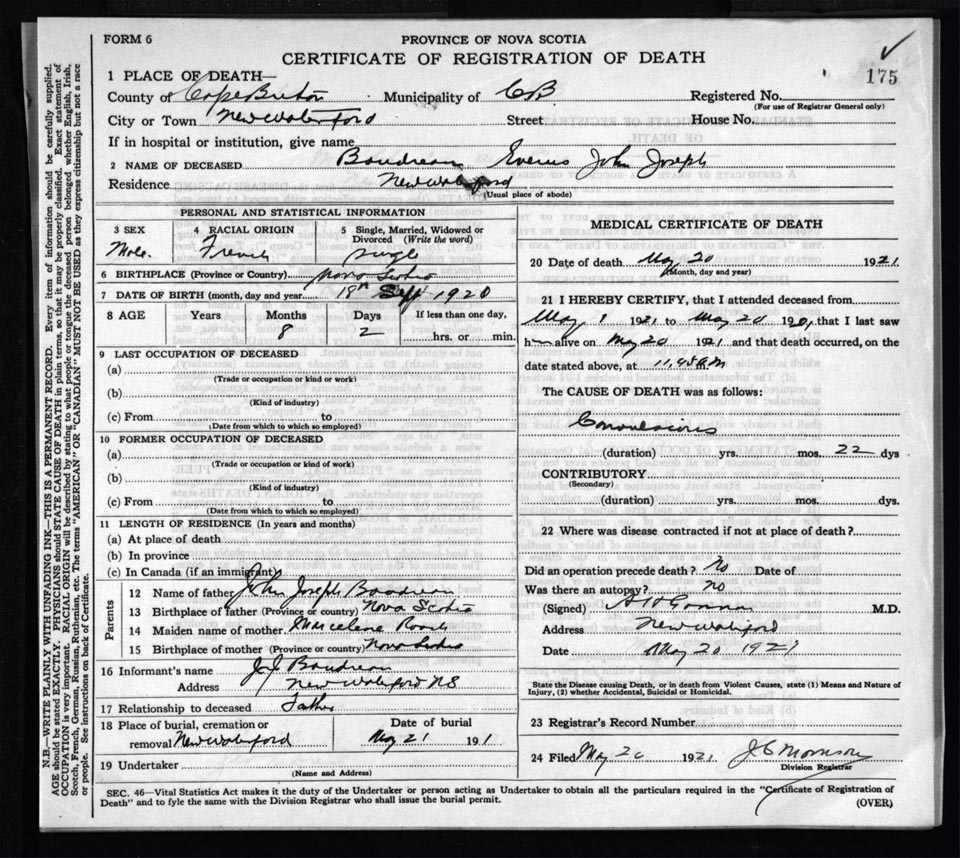 FORM 6
PROVINCE OF NOVA SCOTIA
CERTIFICATE OF REGISTRATION OF DEATH
175
1 PLACE OF DEATH—
County of Cape Breton Municipality of CB Registered No.
(For use of Registrar General only)
City or Town New Waterford Street House No.
If in hospital or institution, give name
2 NAME OF DECEASED Boudreau John Joseph
Residence New Waterford
(Usual place of abode)
PERSONAL AND STATISTICAL INFORMATION
3 SEX 4 RACIAL ORIGIN 5 Single, Married, Widowed or Divorced (Write the word)
Male. French single
6 BIRTHPLACE (Province or Country) Nova Scotia
7 DATE OF BIRTH (month, day and year 18th Sept 1920
8 AGE Years Months Days If less than one day,
8 2 hrs. or min.
9 LAST OCCUPATION OF DECEASED
(a)
(Trade or occupation or kind or work)
(b)
(Kind of industry)
(c) From to
(Date from which to which so employed)
10 FORMER OCCUPATION OF DECEASED
(a)
(Trade or occupation or kind of work)
(b)
(Kind of industry)
(c) From to
(Date from which to which so employed)
11 LENGTH OF RESIDENCE (In years and months)
(a) At place of death
(b) In province
(c) In Canada (if an immigrant)
Parents
12 Name of father John Joseph Boudreau
13 Birthplace of father (Province or country) Nova Scotia
14 Maiden name of mother Marceline
15 Birthplace of mother (Province or country) Nova Scotia
16 Informant's name Boudreau
Address New Waterford NS
17 Relationship to deceased Father
18 Place of burial, cremation or Date of burial
removal New Waterford May 21 191
19 Undertaker
(Name and Address)
MEDICAL CERTIFICATE OF DEATH
20 Date of death May 20 1921
(Month, day and year)
21 I HEREBY CERTIFY, that I attended deceased from
May 1 1921 to May 20 1921, that I last saw
him alive on May 20 1921 and that death occurred, on the
date stated above, at 11.45 m.
The CAUSE OF DEATH was as follows:
Convulsions
(duration) yrs. mos. 22 dys
CONTRIBUTORY
(Secondary)
(duration) yrs. mos. dys.
22 Where was disease contracted if not at place of death?
Did an operation precede death? No Date of
Was there an autopsy? no
(Signed) M.D.
Address New Waterford
Date May 20 1921
State the Disease causing Death, or in death from Violent Causes, state (1) Means and Nature of
Injury, (2) whether Accidental, Suicidal or Homicidal.
23 Registrar's Record Number
24 Filed May 1921 Morrison
Division Registrar
SEC. 46—Vital Statistics Act makes it the duty of the Undertaker or person acting as Undertaker to obtain all the particulars required in the "Certificate of Registration of
Death" and to fyle the same with the Division Registrar who shall issue the burial permit.
(OVER)
N.B.—WRITE PLAINLY WITH UNFADING INK—THIS IS A PERMANENT RECORD. Every item of information should be carefully supplied.
AGE should be stated EXACTLY. PHYSICIANS should STATE CAUSE OF DEATH in plain terms, so that it may be properly classified. Exact statement of
OCCUPATION is very important. RACIAL ORIGIN will be described by stating to what people or tongue the deceased person belonged whether English, Irish,
Scotch, French, German, Russian, Ruthenian, etc. The terms "AMERICAN" OR "CANADIAN" MUST NOT BE USED as they express citizenship but not a race
or people. See instructions on back of Certificate.